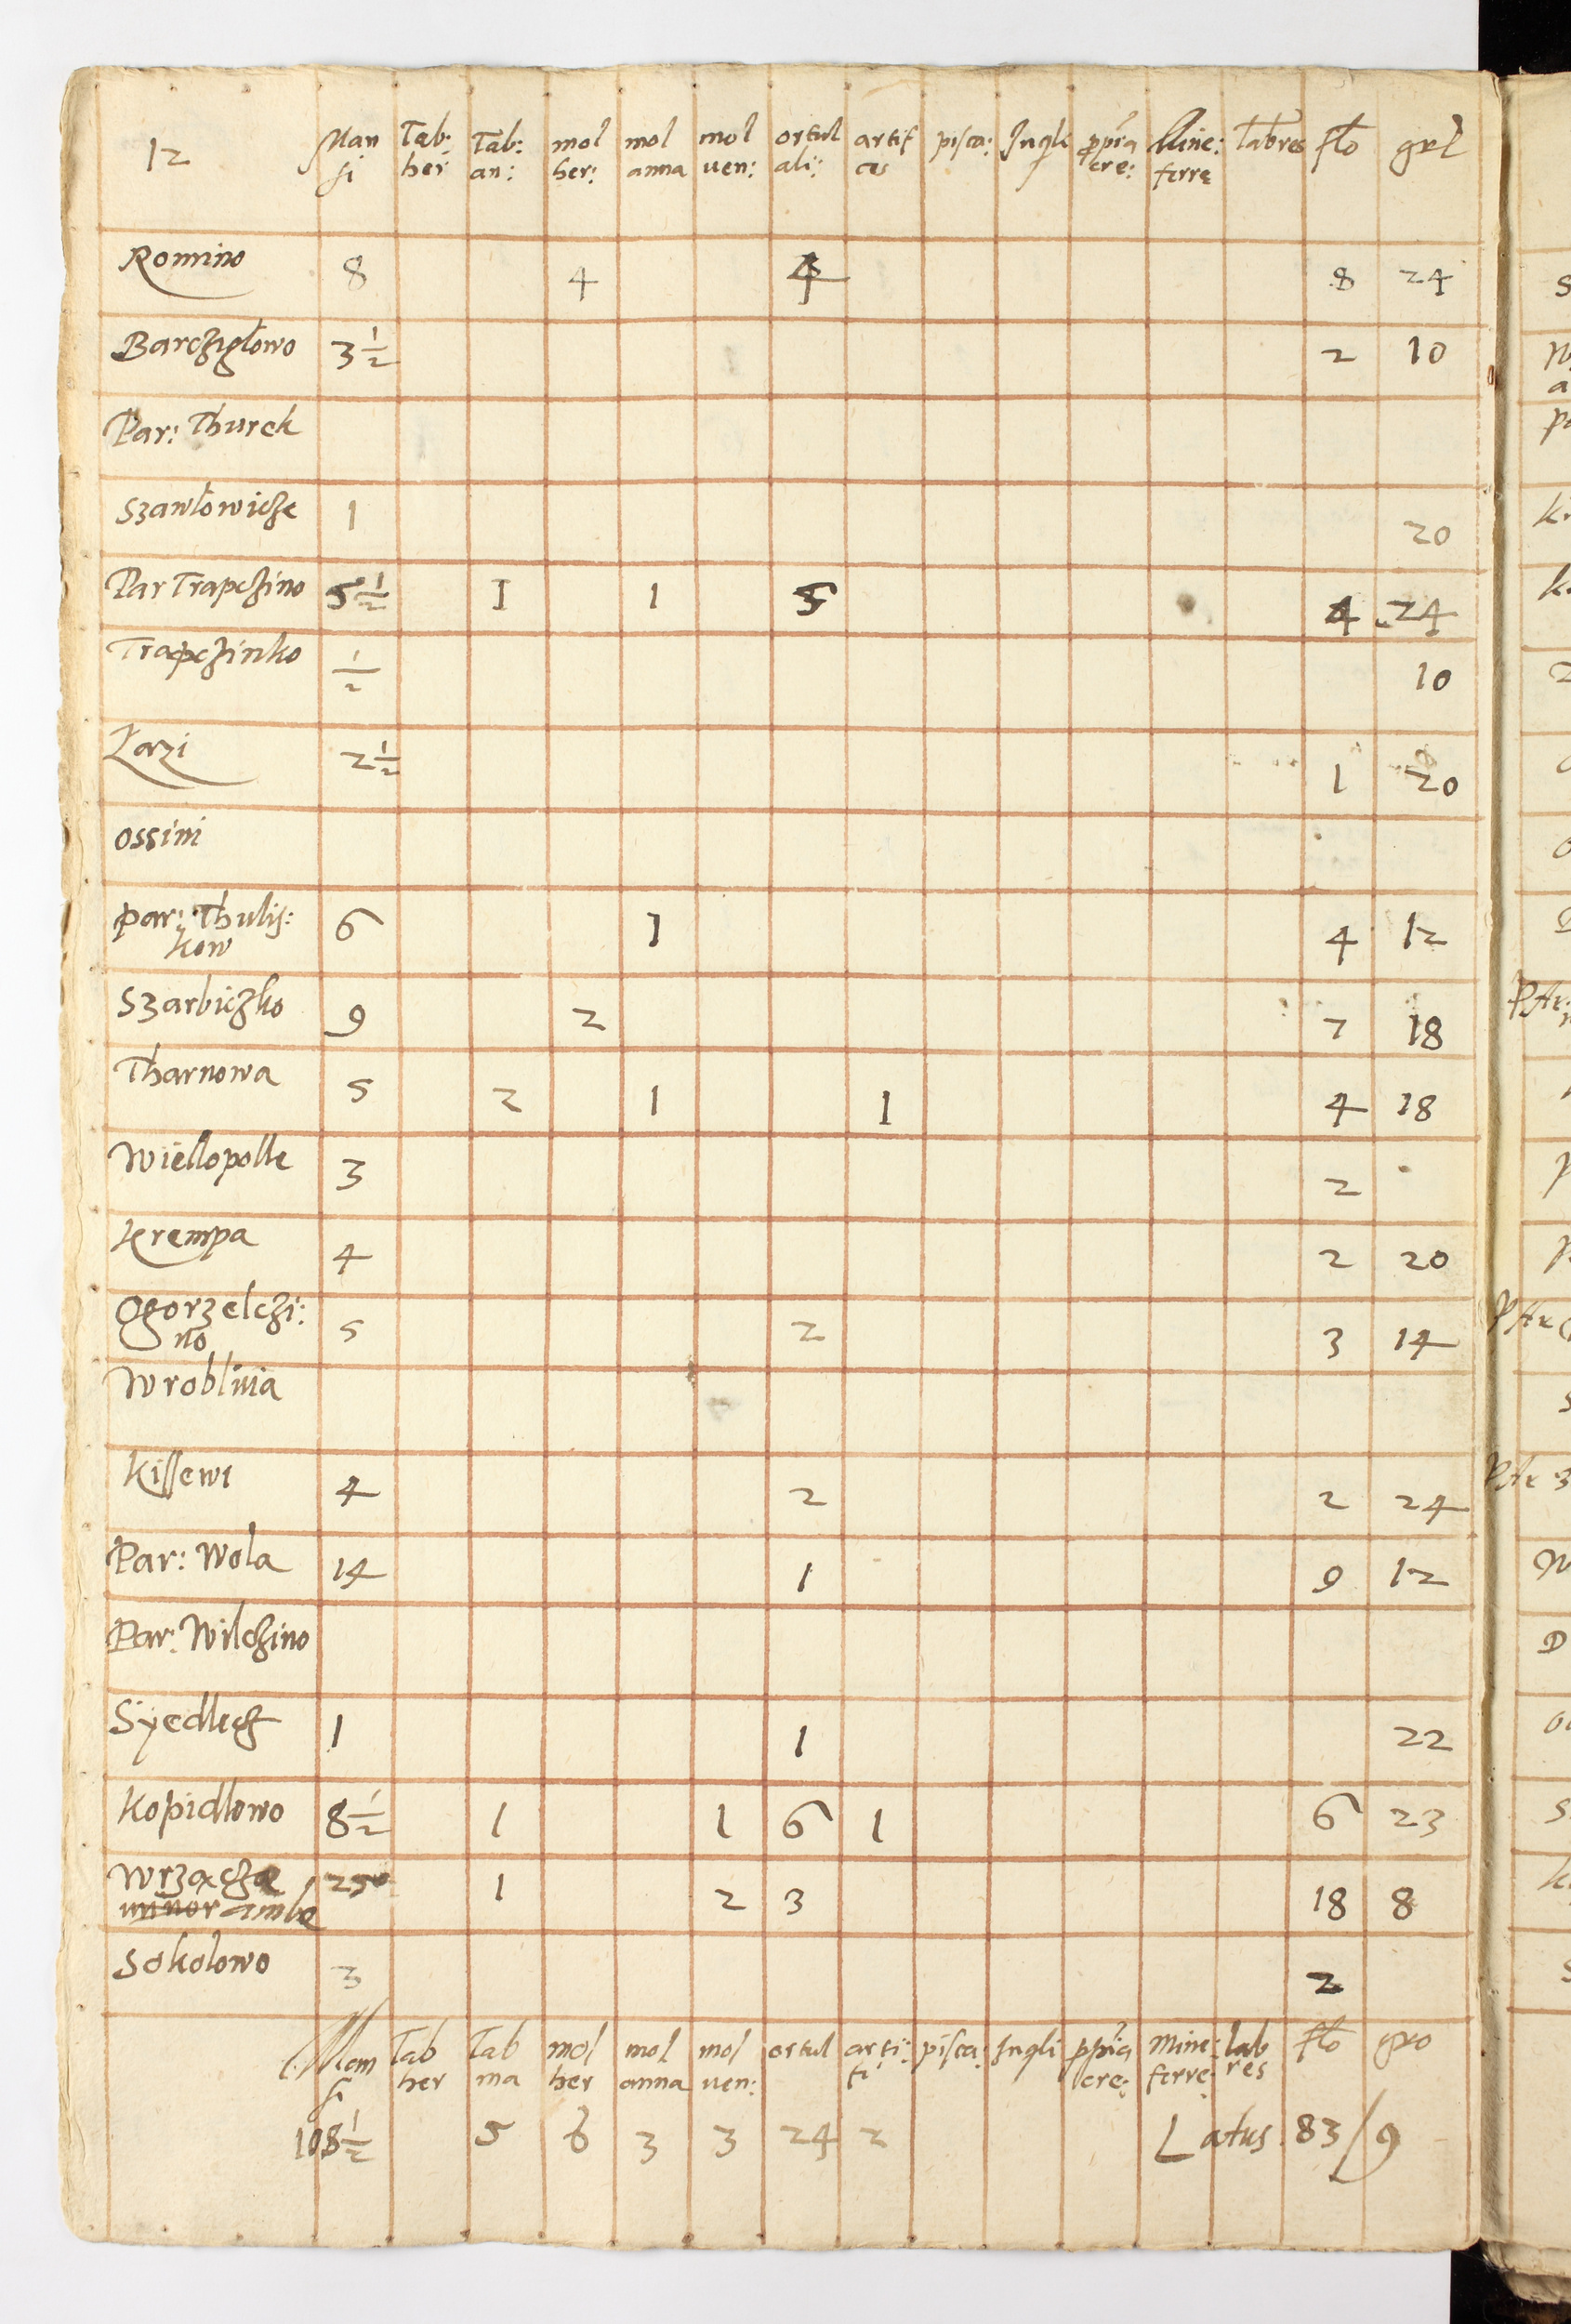 12 Man Tab: Tab: mol mol mol ortul artif pisca: Inqli ppria Mine: labres flo grl
si her an: her: anna uen: ali: ces cre: ferre
Romino 8 4 4 8 24
Barcziglowo 3 1/2 2 10
Par: Thurek
Szawlowicze 1 20
Par Trapczino 5 1/2 1 1 5 4 24
Trapczinko 1/2 10
Larzi 2 1/2 1 20
Ossini
par: Thulis: 6 1 4 12
kow
Szarbiczko 9 2 7 18
Tharnowa 5 2 1 1 4 18
Wiellopolle 3 2
Krempa 4 2 20
Ogorzelczi: 5 2 3 14
no
Wroblinia
Kissewi 4 2 2 24
Par: Wola 14 1 9 12
Par: Wilczino
Syedlecz 1 1 22
Kopidlowo 8 1/2 1 1 6 1 6 23
Wrzącza 25 1 2 3 18 8
minor ambe
Sokolowo 3 2
Man Tab Tab mol mol mol ortul arti: pisca: Inqli ppria Mine: lab flo gro
si her ma her anna uen: fi cre: ferre: res
108 1/2 5 6 3 3 24 2 Latus 83/9